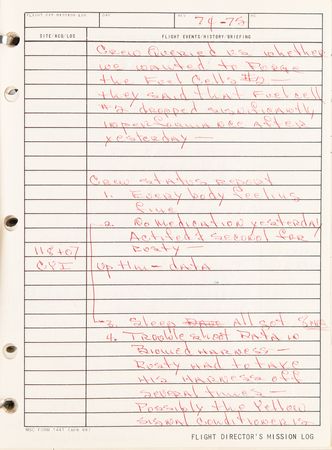 FLIGHT DIR MISSION LOG DAY REV 74-75
SITE/ACQ/LOS FLIGHT EVENTS/HISTORY/BRIEFING
Crew Queried us whether
we wanted to Purge
the Fuel Cells #2 —
they said that Fuel cell
#2 dropped significantly
in performance after
yesterday —
Crew status report
1. Everybody feeling
fine
2. No medication yesterday
Actifed & Seconal for
118+07 Rusty —
CYI Up thru — data
3. Sleep All got
4. Trouble shoot DATA in
Biomed Harness —
Rusty had to take
His Harness off
several times —
Possibly the Yellow
signal conditioner is
MSC FORM 1441
FLIGHT DIRECTOR'S MISSION LOG